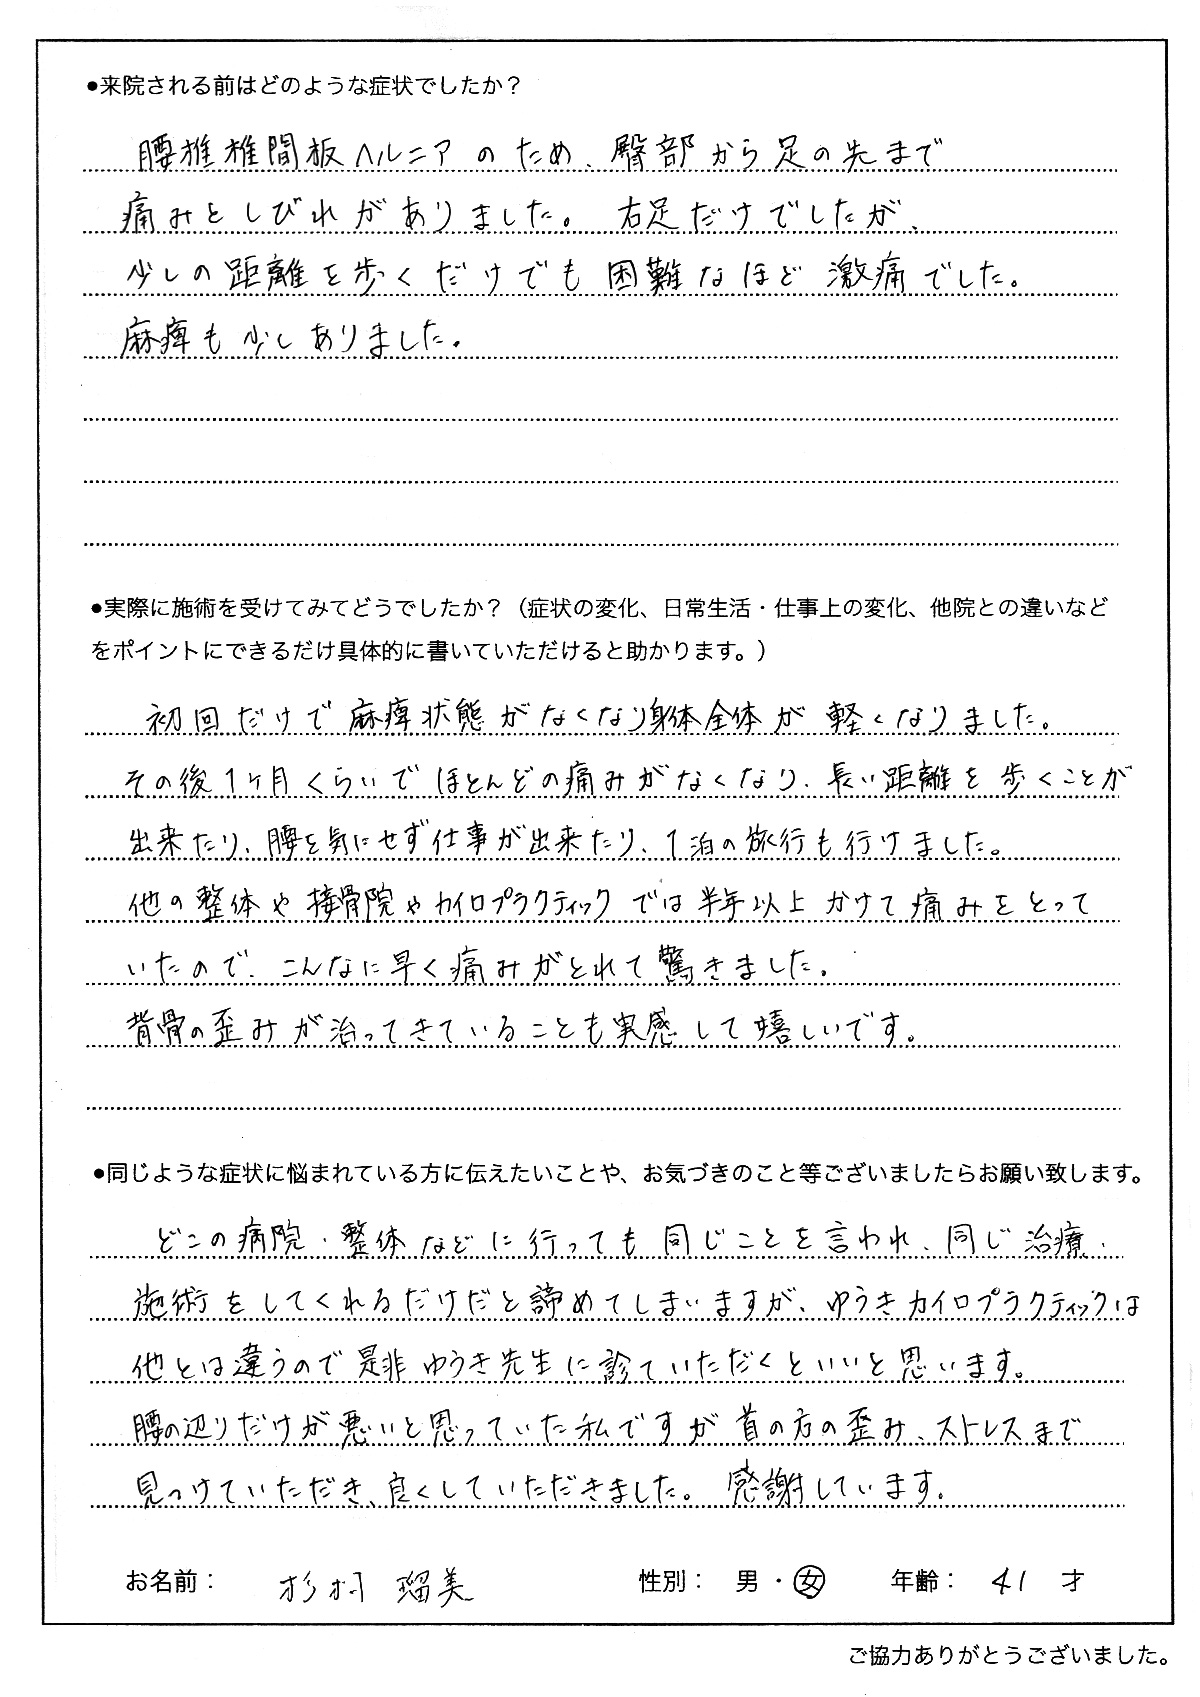 ●来院される前はどのような症状でしたか？
腰椎椎間板ヘルニアのため、臀部から足の先まで
痛みとしびれがありました。右足だけでしたが、
少しの距離を歩くだけでも困難なほど激痛でした。
麻痺も少しありました。
●実際に施術を受けてみてどうでしたか？（症状の変化、日常生活・仕事上の変化、他院との違いなど
をポイントにできるだけ具体的に書いていただけると助かります。）
初回だけで麻痺状態がなくなり身体全体が軽くなりました。
その後1ヶ月くらいでほとんどの痛みがなくなり、長い距離を歩くことが
出来たり、腰を気にせず仕事が出来たり、1泊の旅行も行けました。
他の整体や接骨院やカイロプラクティックでは半年以上かけて痛みをとって
いたので、こんなに早く痛みがとれて驚きました。
背骨の歪みが治ってきていることも実感して嬉しいです。
●同じような症状に悩まれている方に伝えたいことや、お気づきのこと等ございましたらお願い致します。
どこの病院・整体などに行っても同じことを言われ、同じ治療・
施術をしてくれるだけだと諦めてしまいますが、ゆうきカイロプラクティックは
他とは違うので是非ゆうき先生に診ていただくといいと思います。
腰の辺りだけが悪いと思っていた私ですが首の方の歪み、ストレスまで
見つけていただき、良くしていただきました。感謝しています。
お名前： 杉村 瑠美 性別： 男・女 年齢： 41 才
ご協力ありがとうございました。